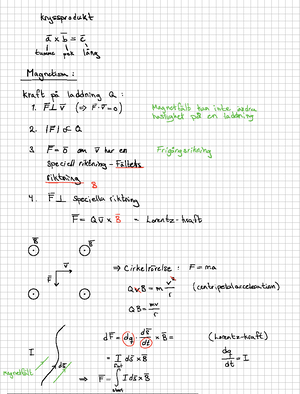 kryssprodukt
ā × b̄ = c̄
tumme pek lång
Magnetism :
kraft på laddning Q :
1. F̄ ⊥ v̄ (⇒ F̄·v̄ = 0) Magnetfält kan inte ändra hastighet på en laddning
2. |F̄| ∝ Q
3. F̄ = 0̄ om v̄ har en Frigångsriktning
speciell riktning - Fältets
riktning B̄
4. F̄ ⊥ speciella riktning
F̄ = Q v̄ × B̄ = Lorentz-kraft
B̄ B̄
v̄
F̄
⇒ Cirkelrörelse : F = ma
QvB = m v²/r (centripetalacceleration)
QB = mv/r
dF̄ = dq · ds̄/dt × B̄ = (Lorentz-kraft)
= I ds̄ × B̄ dq/dt = I
I
magnetfält ds̄
⇒ F̄ = ∫ I ds̄ × B̄